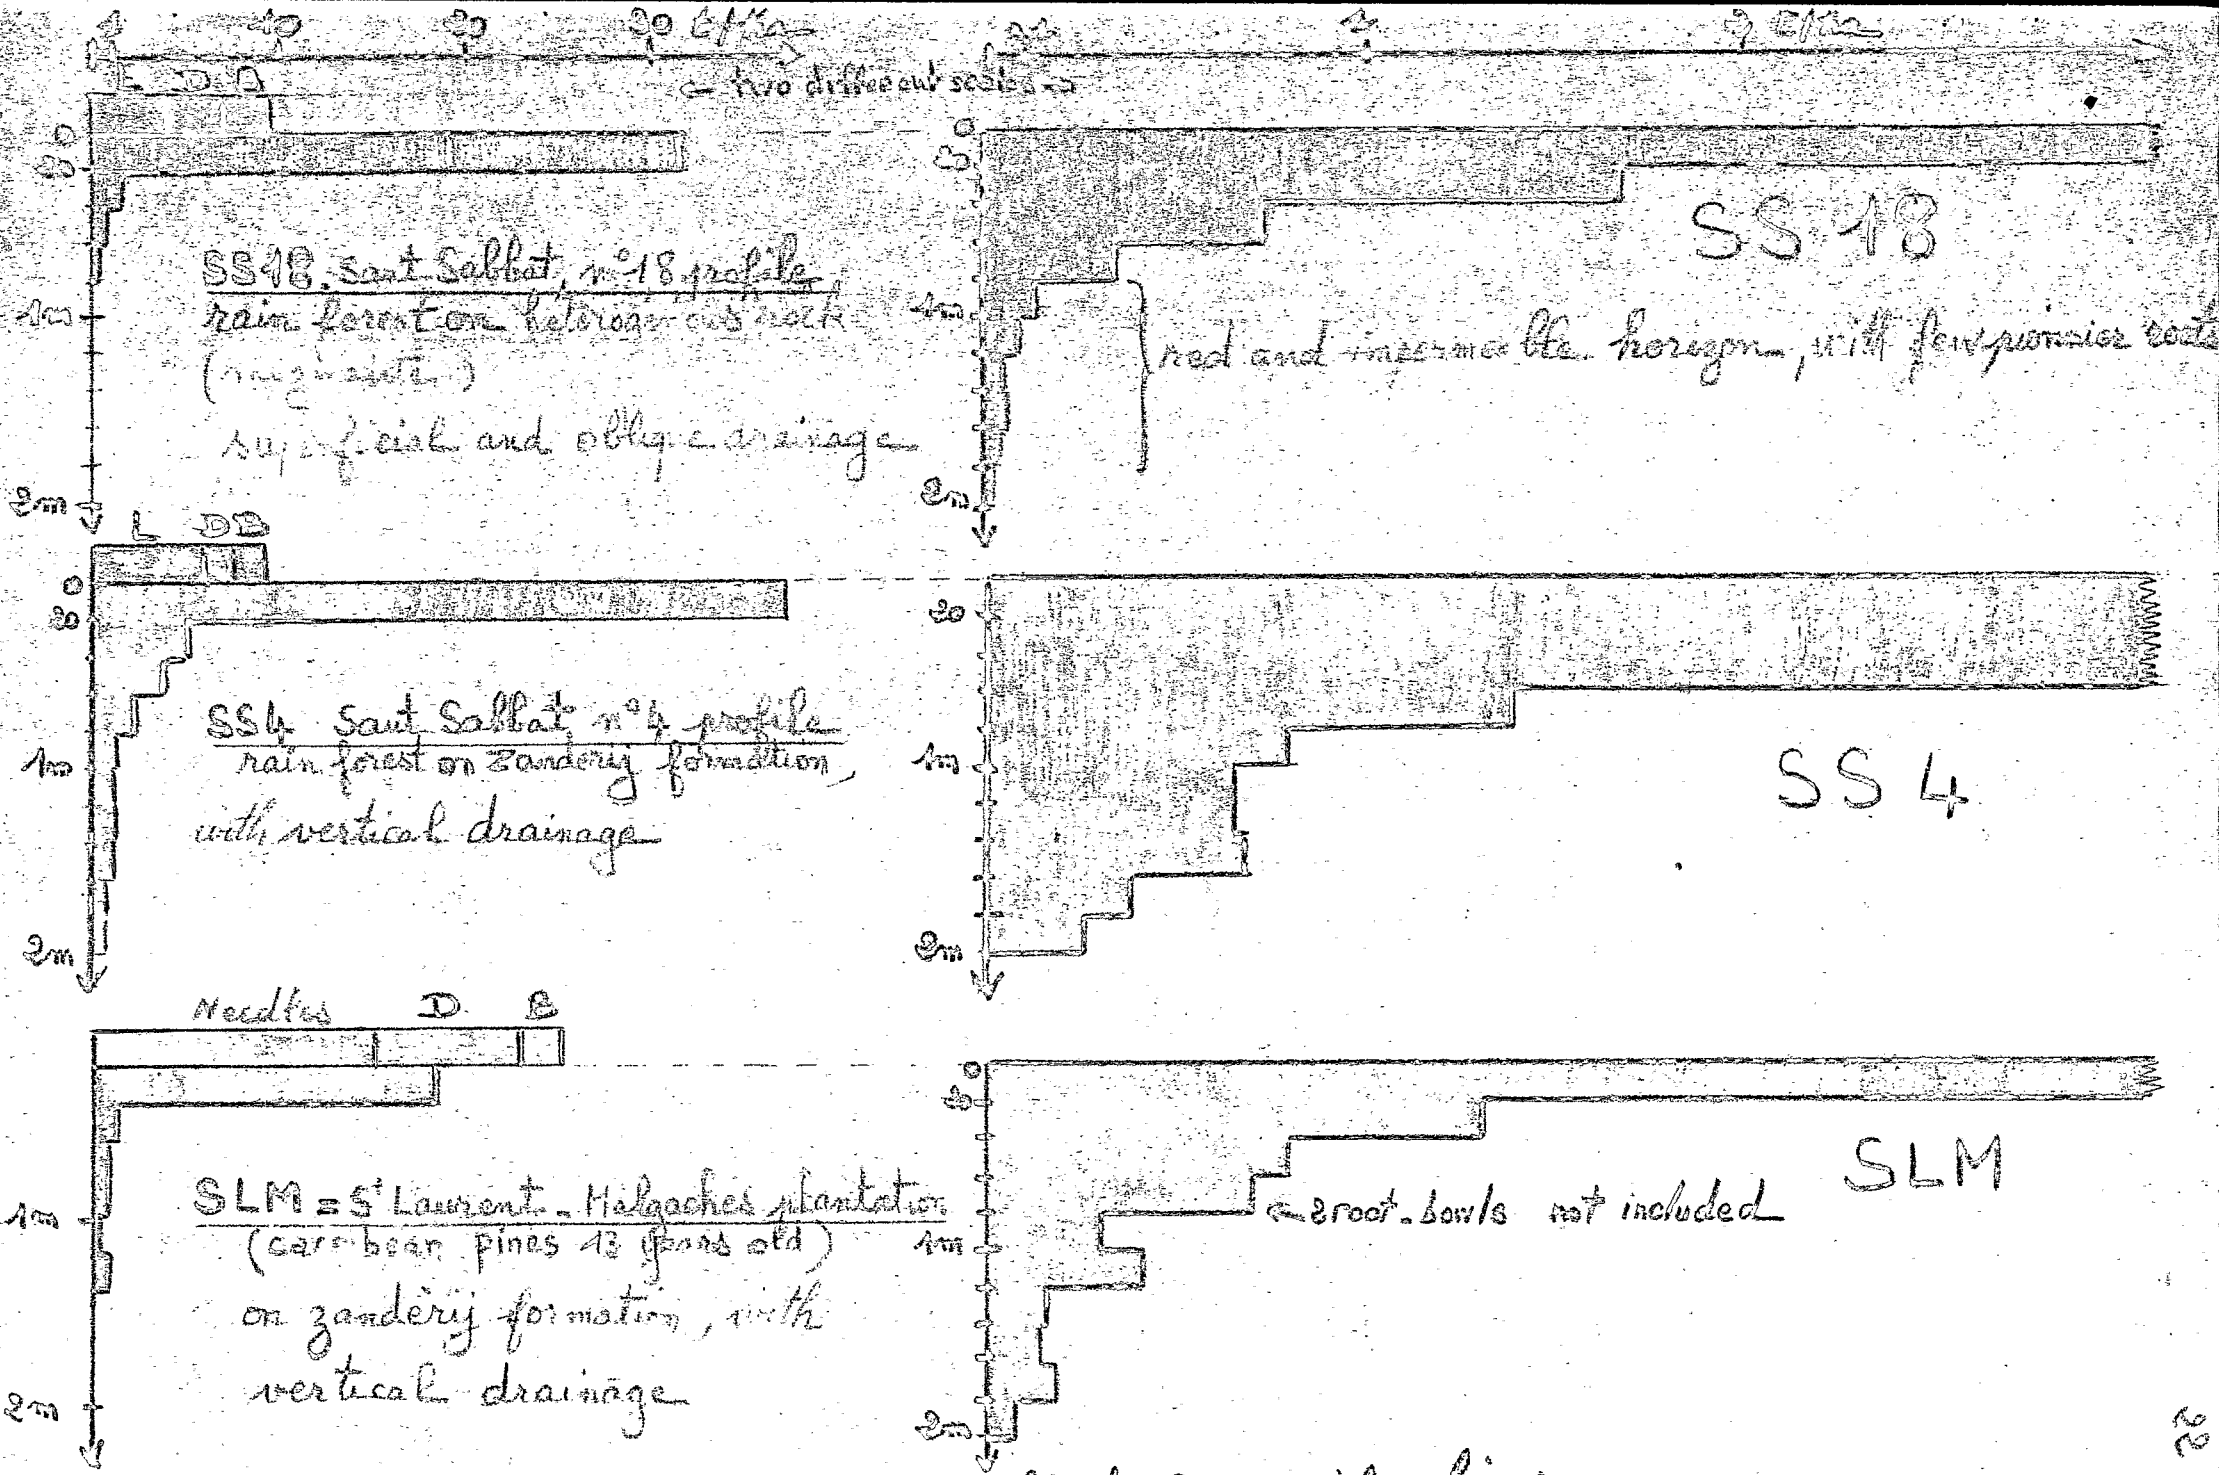 1 10 20 30 t/ha
← two different scales →
1 2 t/ha
L D B
0
20
1m
2m
SS18. Saut Sabbat, n°18 profile
rain forest on heterogenous rock
superficial and oblique drainage
0
20
1m
2m
SS 18
red and impermeable horizon, with few pionnier roots
L D B
0
20
1m
2m
SS4 Saut Sabbat n°4 profile
rain forest on Zanderij formation,
with vertical drainage
20
1m
2m
SS 4
Needles D B
1m
2m
SLM = St Laurent - Malgaches plantation
(carribean pines 13 years old)
on zandérij formation, with
vertical drainage
0
20
1m
2m
SLM
← root-bowls not included
22